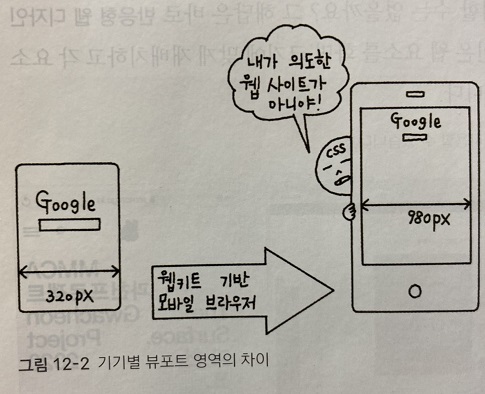 내가 의도한
웹 사이트가
아니야!
CSS
Google
980px
Google
320px
웹키트 기반
모바일 브라우저
그림 12-2 기기별 뷰포트 영역의 차이